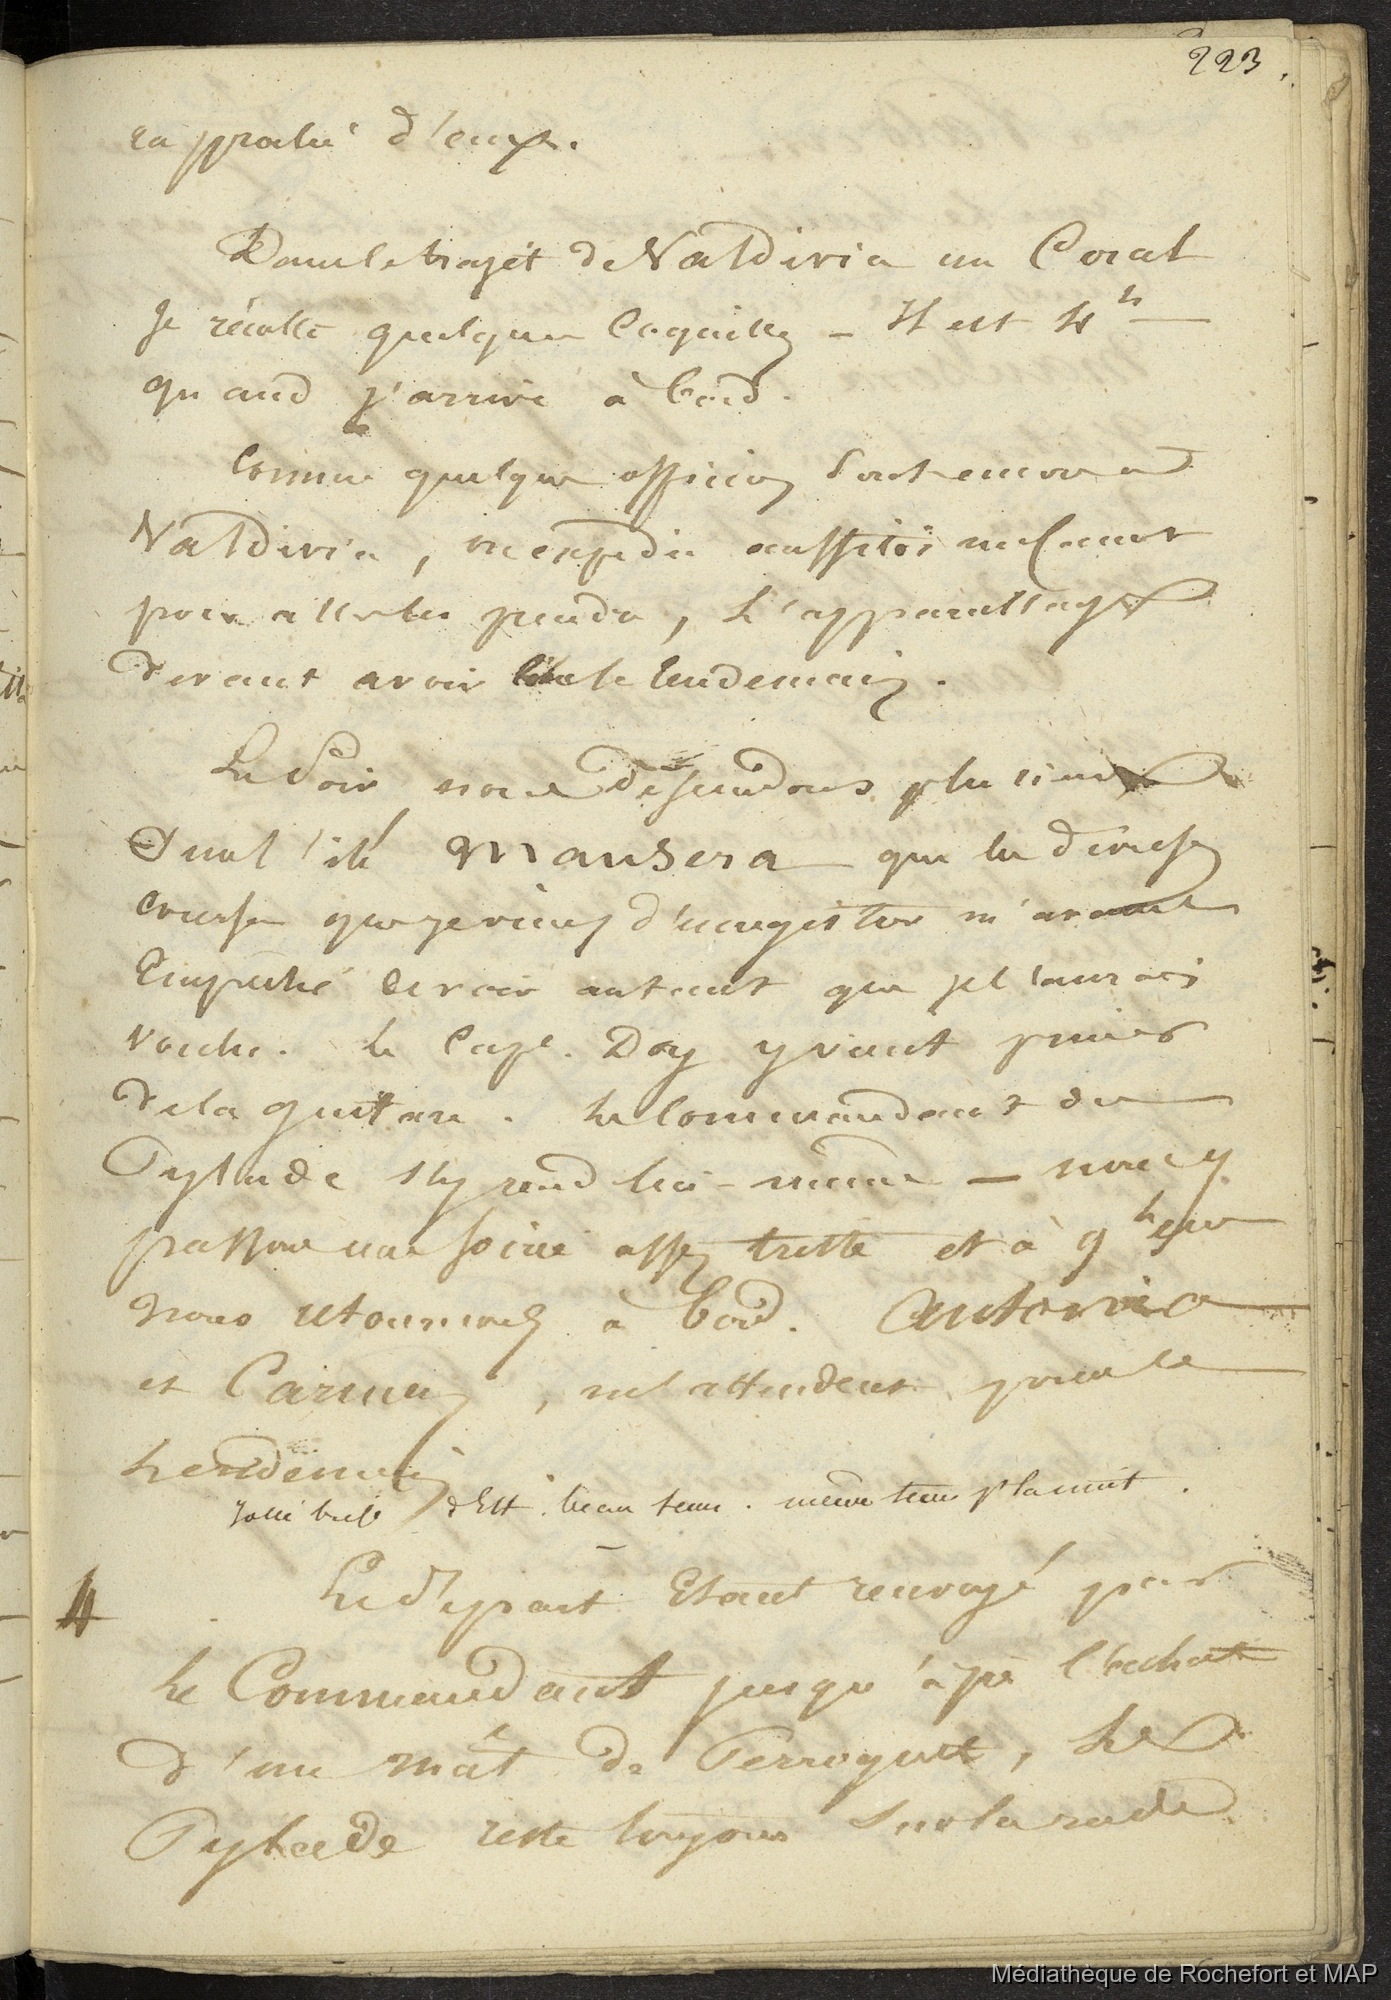 223
rapproché d'eux.
Dans le trajet de Valdivia au Coral
Je récolte quelques Coquilles – Il est 4h
quand j'arrive à bord.
Comme quelques officiers sont encore à
Valdivia, on expédie aussitôt un Canot
pour aller les prendre, L'appareillage
devant avoir lieu le lendemain.
Le Soir nous descendons plusieurs
Sur l'ile Mansera que les diverses
courses que je viens d'enregistrer m'avaient
Empêché de voir autant que je l'aurais
voulu. Le Cape. Day y vient pincer
de la guitare. Le Commandant du
Pylade s'y rend lui-même – nous y
passons une soirée assez triste et à 9h
nous retournons à bord. Antonia
et Carmen, m'attendent pour le
Lendemain
Jolie brise d'Est. beau tems. même tems p. la nuit.
4
Le départ Etant renvoyé par
Le Commandant jusqu'après l'achat
d'un mât de Perroquet, Le
Pylade reste toujours sur la rade
Médiathèque de Rochefort et MAP